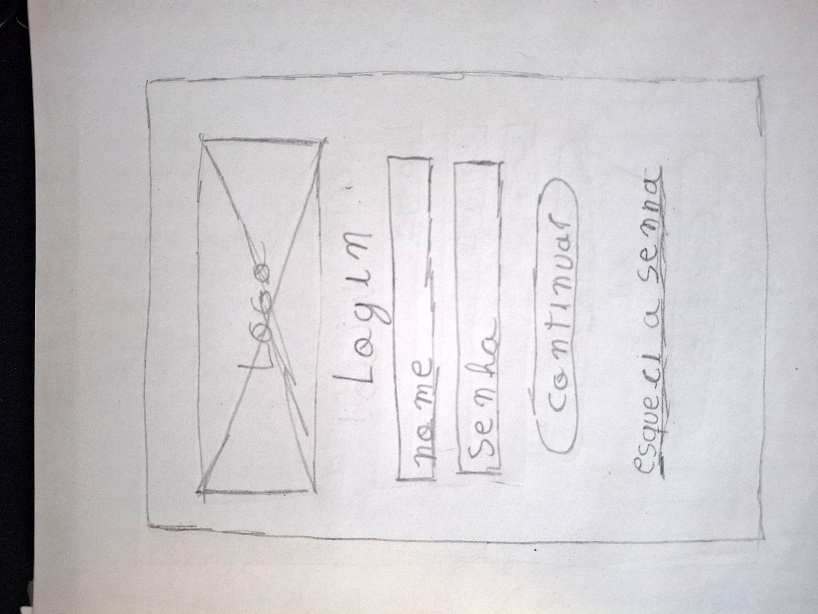 LOGO
Login
nome
Senha
continuar
esqueci a senha